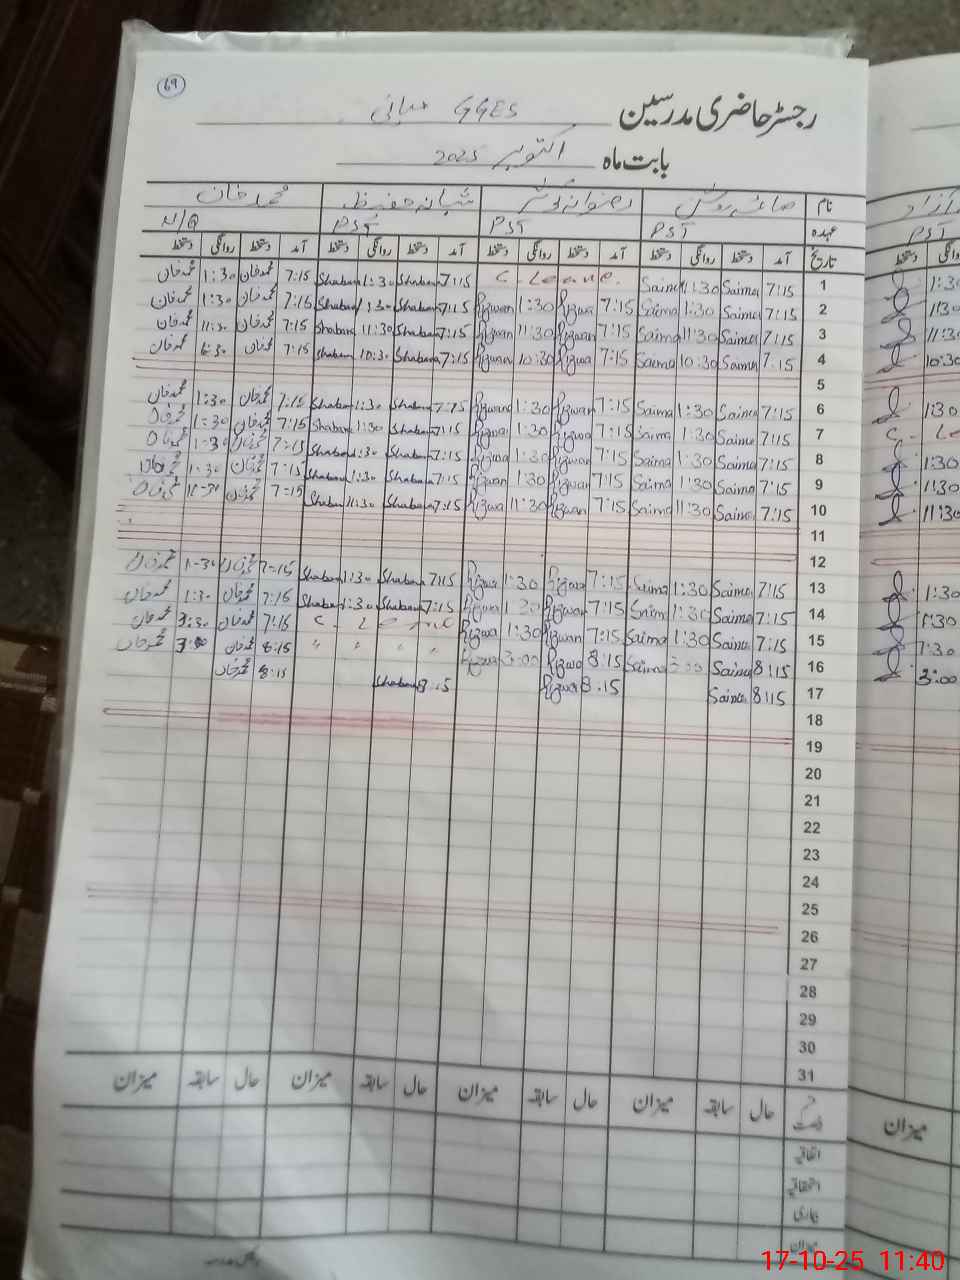 69
رجسٹر حاضری مدرسین GGES
بابت ماہ اکتوبر 2025
نام صائمہ شبانہ حفیظ محمد خان
عہدہ PST PST PST N/Q PST
تاریخ آمد دستخط روانگی دستخط آمد دستخط روانگی دستخط آمد دستخط روانگی دستخط آمد دستخط روانگی دستخط
1 7:15 Saima 1:30 Saima C Leave. 7:15 Shabana 1:30 Shabana 7:15 محمد خان 1:30 محمد خان
2 7:15 Saima 1:30 Saima 7:15 Rizwan 1:30 Rizwan 7:15 Shabana 1:30 Shabana 7:15 محمد خان 1:30 محمد خان
3 7:15 Saima 11:30 Saima 7:15 Rizwan 11:30 Rizwan 7:15 Shabana 11:30 Shabana 7:15 محمد خان 11:30 محمد خان 11:30
4 7:15 Saima 10:30 Saima 7:15 Rizwan 10:30 Rizwan 7:15 Shabana 10:30 Shaban 7:15 محمد خان محمد خان 10:30
5
6 7:15 Saima 1:30 Saima 7:15 Rizwan 1:30 Rizwan 7:15 Shabana 1:30 Shabana 7:15 محمد خان 1:30 محمد خان 1:30
7 7:15 Saima 1:30 Saima 7:15 Rizwan 1:30 Rizwan 7:15 Shabana 1:30 Shabana 7:15 محمد خان 1:30 محمد خان
8 7:15 Saima 1:30 Saima 7:15 Rizwan 1:30 Rizwa 7:15 Shabana 1:30 Shabana 7:15 محمد خان 1:30 محمد خان 1:30
9 7:15 Saima 1:30 Saima 7:15 Rizwan 1:30 Rizwan 7:15 Shabana 1:30 Shabana 7:15 محمد خان 1:30 محمد خان
10 7:15 Saima 11:30 Saima 7:15 Rizwan 11:30 Rizwa 7:15 Shabana 11:30 Shaban 7:15 محمد خان 11:30 محمد خان 11:30
11
12
13 7:15 Saima 1:30 Saima 7:15 Rizwa 1:30 Rizwa 7:15 Shabana 1:30 Shabana 7:15 محمد خان 1:30 محمد خان 1:30
14 7:15 Saima 1:30 Saima 7:15 Rizwan 1:30 Rizwa 7:15 Shabana 1:30 Shabana 7:15 محمد خان 1:30 محمد خان 1:30
15 7:15 Saima 1:30 Saima 7:15 Rizwan 1:30 Rizwa C Leave 7:15 محمد خان محمد خان
16 8:15 Saima 3:00 Saima 8:15 Rizwa 3:00 Rizwa " " " " 8:15 محمد خان 3:00 محمد خان 3:00
17 8:15 Saima 8:15 Rizwa 8:15 Shabana 8:15 محمد خان
18
19
20
21
22
23
24
25
26
27
28
29
30
31
حال سابقہ میزان حال سابقہ میزان حال سابقہ میزان حال سابقہ میزان میزان
اتفاقیہ
استحقاقیہ
بیماری
میزان
17-10-25 11:40